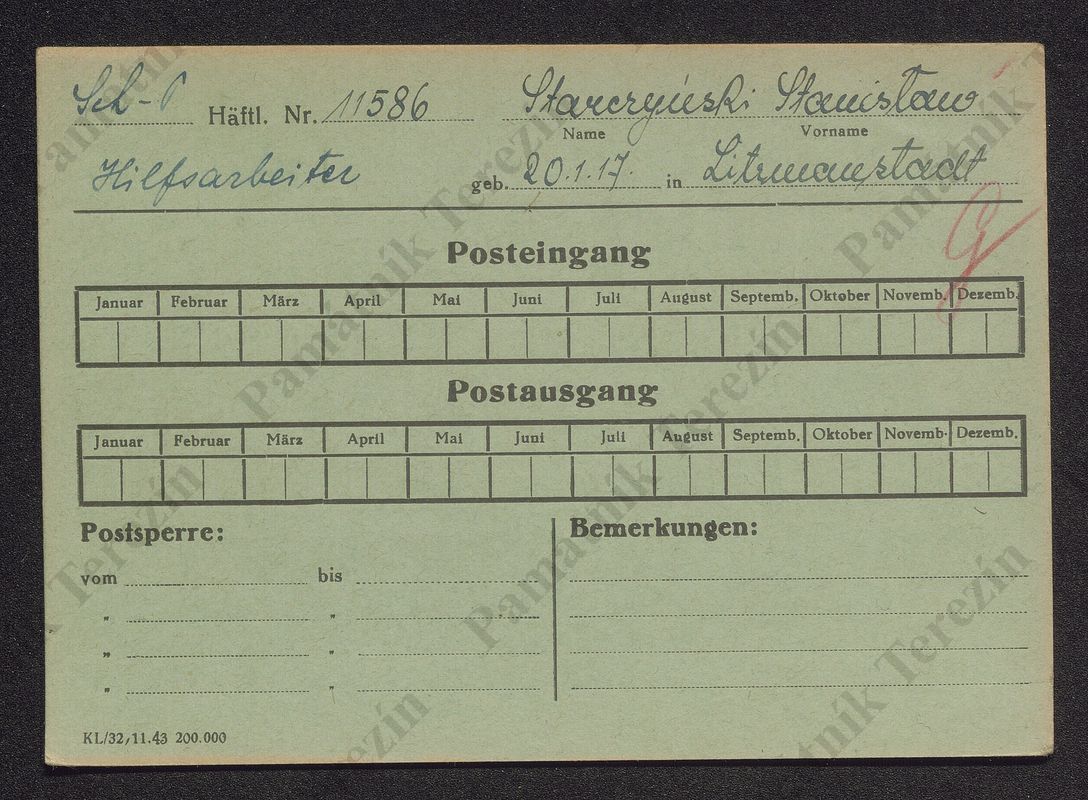 Sch-P Häftl. Nr. 11586 Starczyński Stanisław
Name Vorname
Hilfsarbeiter geb. 20.1.17. in Litzmanstadt
Posteingang
Januar Februar März April Mai Juni Juli August Septemb. Oktober Novemb. Dezemb.
Postausgang
Januar Februar März April Mai Juni Juli August Septemb. Oktober Novemb. Dezemb.
Postsperre: Bemerkungen:
vom bis
" "
" "
" "
KL/32,11.43 200.000
Památník Terezín